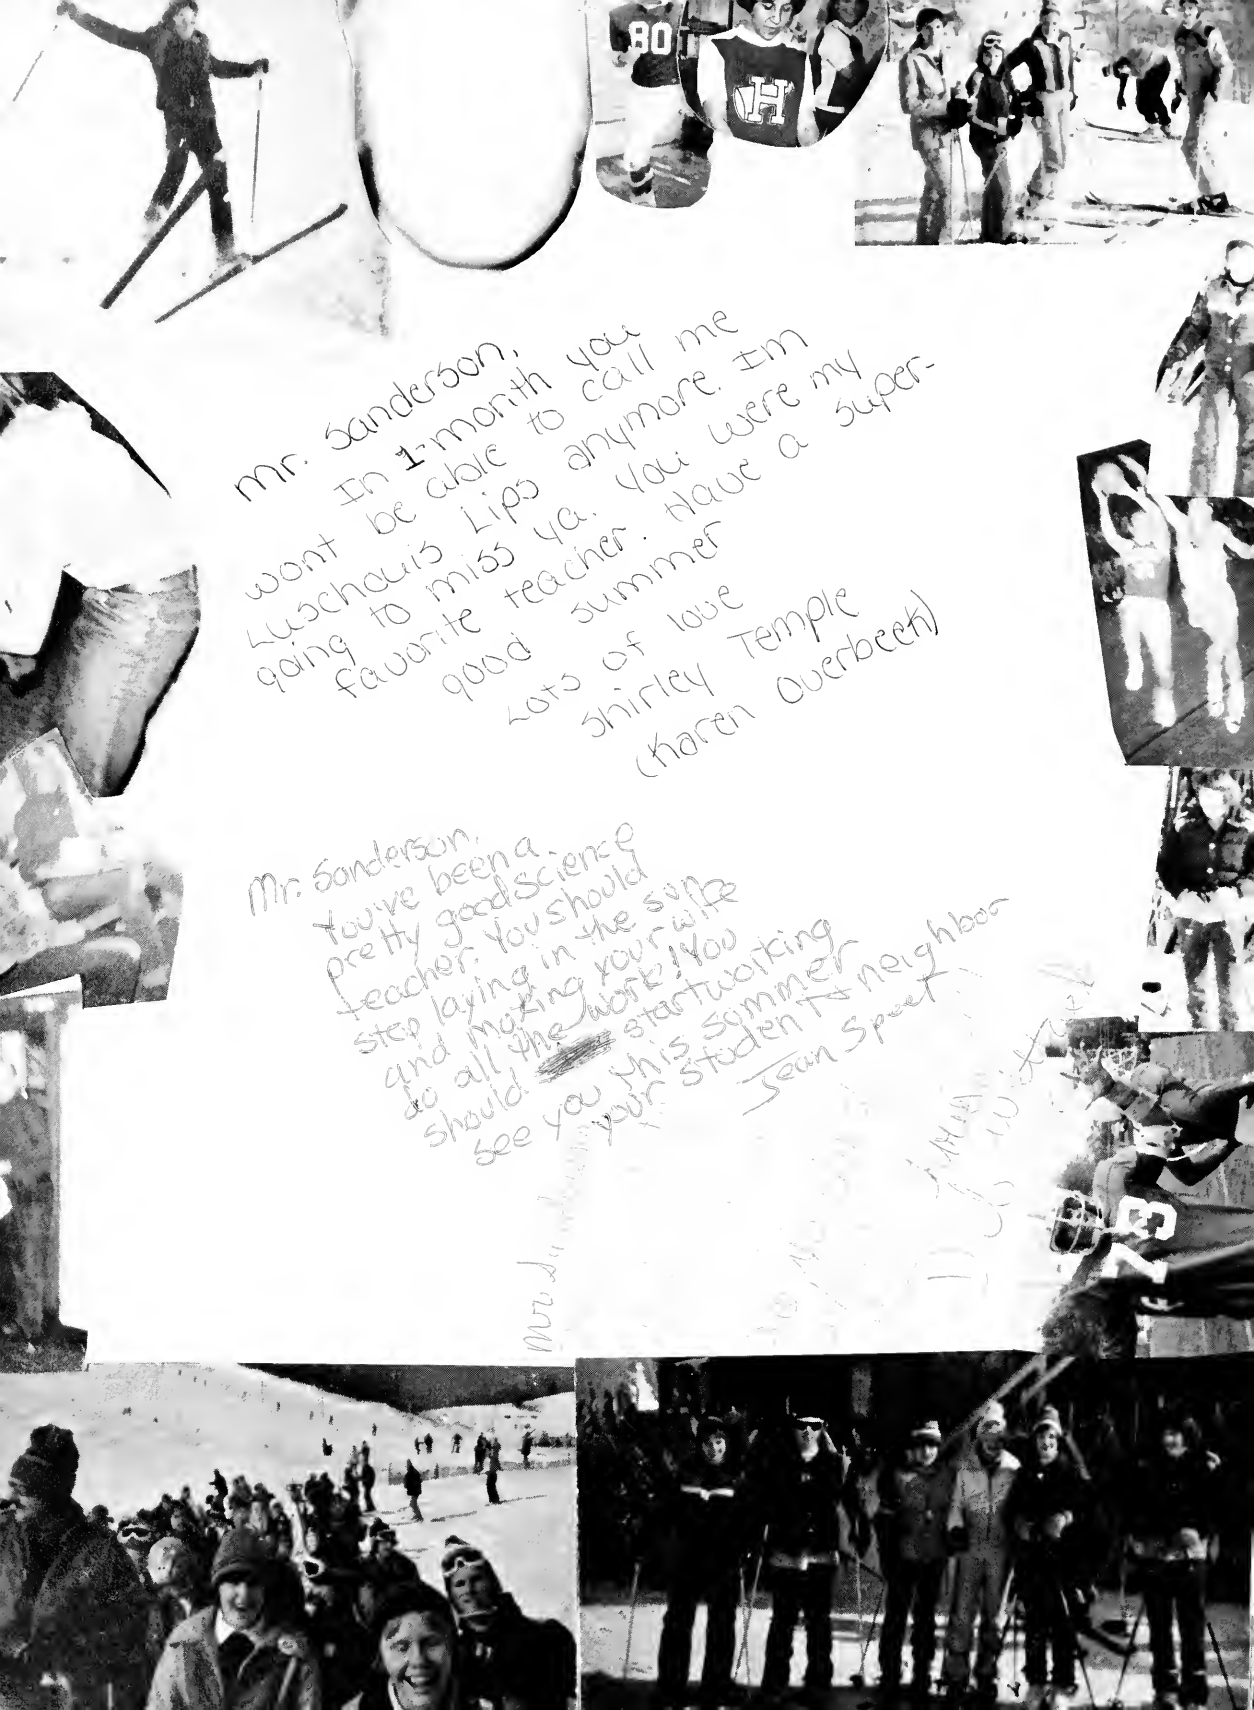 80
H
Mr. Sanderson,
In 1-month you
wont be able to call me
Luschouis Lips anymore. Im
going to miss ya. You were my
favorite teacher. Have a super-
good summer
Lots of love
Shirley Temple
(Karen Overbeck)
Mr. Sanderson,
You've been a
pretty good science
teacher. You should
stop laying in the sun
and making your wife
do all the work! You
should start working
see you this summer
your student & neighbor
Jean Spoet
73